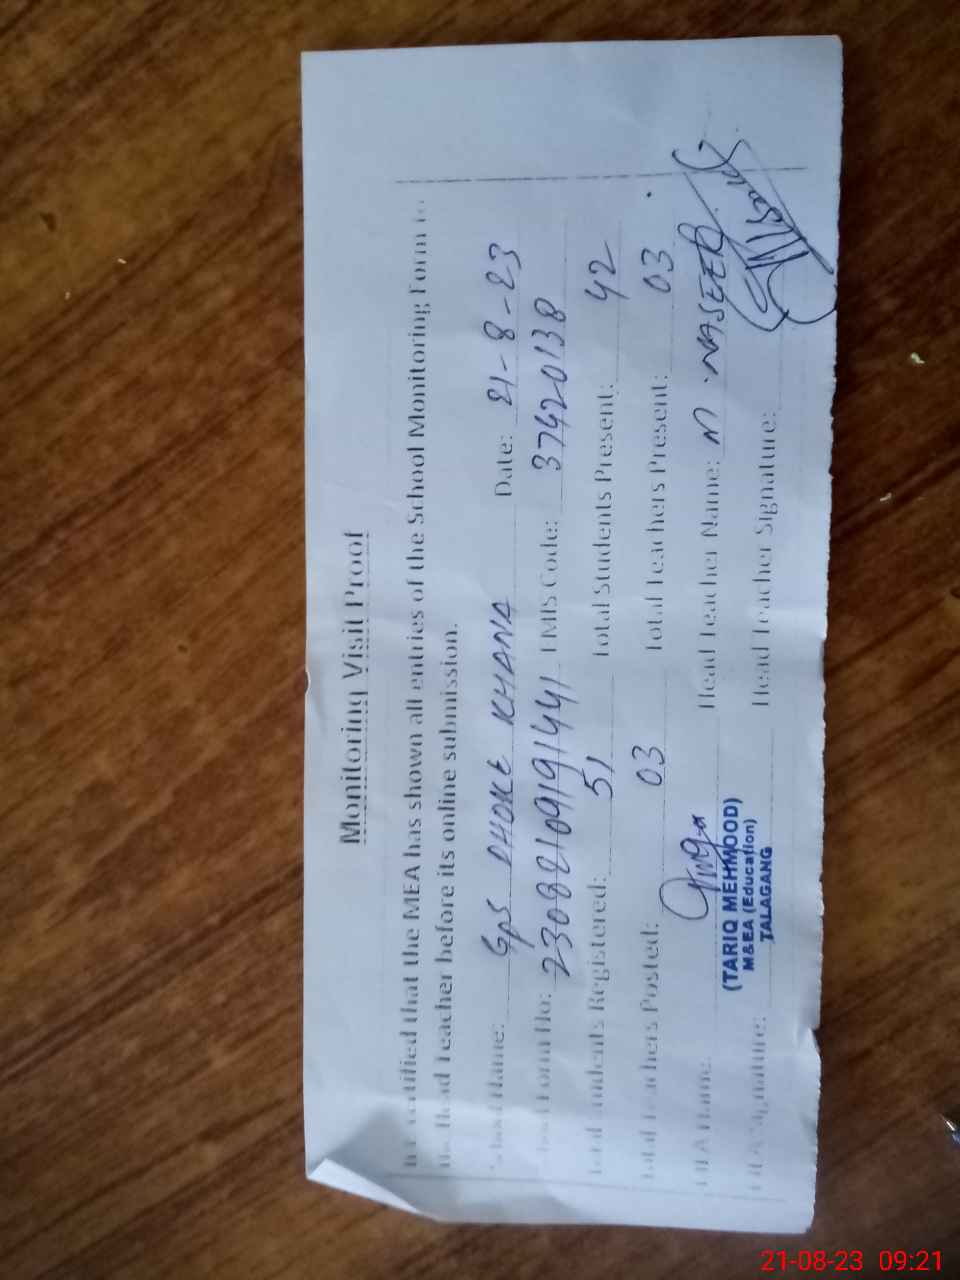 Monitoring Visit Proof
It is certified that the MEA has shown all entries of the School Monitoring Form to
the Head Teacher before its online submission.
School Name: GPS DHOKE KHANA Date: 21-8-23
Form No: 23082109191441 EMIS Code: 37420138
Total Students Registered: 51 Total Students Present: 42
Total Teachers Posted: 03 Total Teachers Present: 03
MEA Name: Head Teacher Name: M. NASEER
(TARIQ MEHMOOD)
M&EA (Education)
TALAGANG
MEA Signature: Head Teacher Signature:
21-08-23 09:21